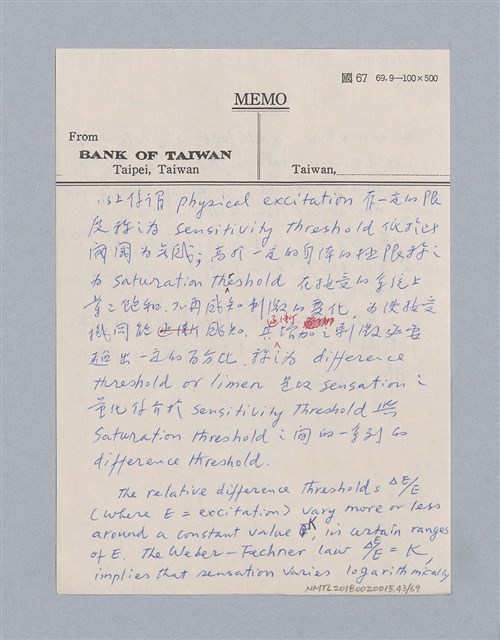 國 67 69.9—100×500
MEMO
From
BANK OF TAIWAN
Taipei, Taiwan
Taiwan,
以上所謂 physical excitation 在一定的限
度稱之為 sensitivity threshold 低於此
閾閾為無感; 高於一定的的極限稱之
為 saturation threshold 在接受的系統上
之飽和, 不再感知刺激的變化, 為使接受
機關能 感知, 其逐漸增加之刺激必要
超出一定的百分比, 稱之為 difference
threshold or limen 是以 sensation 之
量化介於 sensitivity Threshold 與
Saturation threshold 之間的一系列的
difference threshold.
The relative difference thresholds ΔE/E
(where E = excitation) vary more or less
around a constant value K, in certain ranges
of E. The Weber-Fechner law ΔE/E = K,
implies that sensation varies logarithmically
NMTL20180020015.43/69